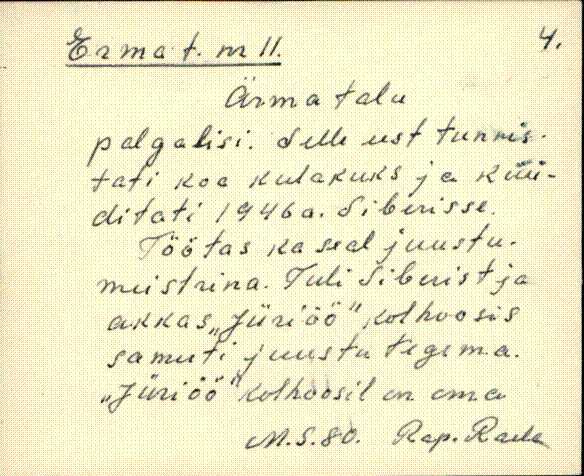 Erma t. nr 11. 4.
Ärma talu
palgalisi. Selle eest tunnis-
tati koa kulakuks ja küü-
ditati 1946 a. Siberisse.
Töötas ka seal juustu-
meistrina. Tuli Siberist ja
akkas „Jüriöö" kolhoosis
samuti juustu tegema.
„Jüriöö" kolhoosil on oma
M.S.80. Rap. Raela